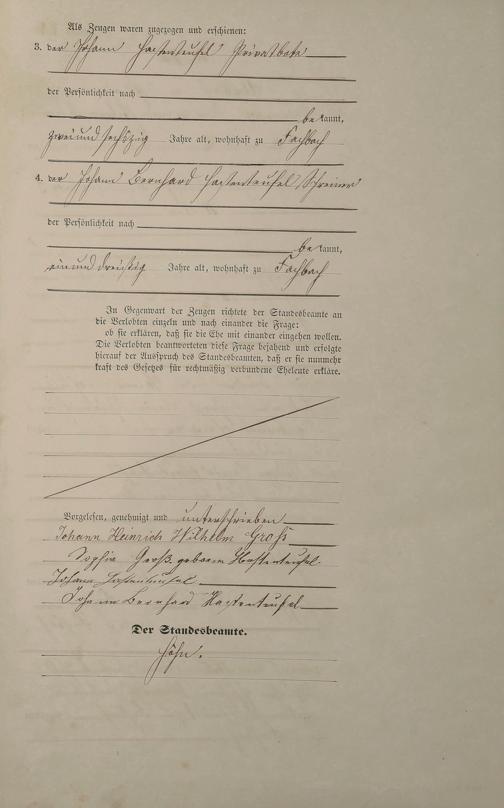 Als Zeugen waren zugezogen und erschienen:
3. der Johann Hastenteufel Privatbote
der Persönlichkeit nach
be kannt,
zweiundsechszig Jahre alt, wohnhaft zu Fachbach
4. der Johann Bernhard Hastenteufel, Schreiner
der Persönlichkeit nach
be kannt,
einunddreißig Jahre alt, wohnhaft zu Fachbach
In Gegenwart der Zeugen richtete der Standesbeamte an
die Verlobten einzeln und nach einander die Frage:
ob sie erklären, daß sie die Ehe mit einander eingehen wollen.
Die Verlobten beantworteten diese Frage bejahend und erfolgte
hierauf der Ausspruch des Standesbeamten, daß er sie nunmehr
kraft des Gesetzes für rechtmäßig verbundene Eheleute erkläre.
Vorgelesen, genehmigt und unterschrieben
Johann Heinrich Wilhelm Groß
Sophia Groß geborene Hastenteufel.
Johann Hastenteufel
Johann Bernhard Hastenteufel
Der Standesbeamte.
Höhn.